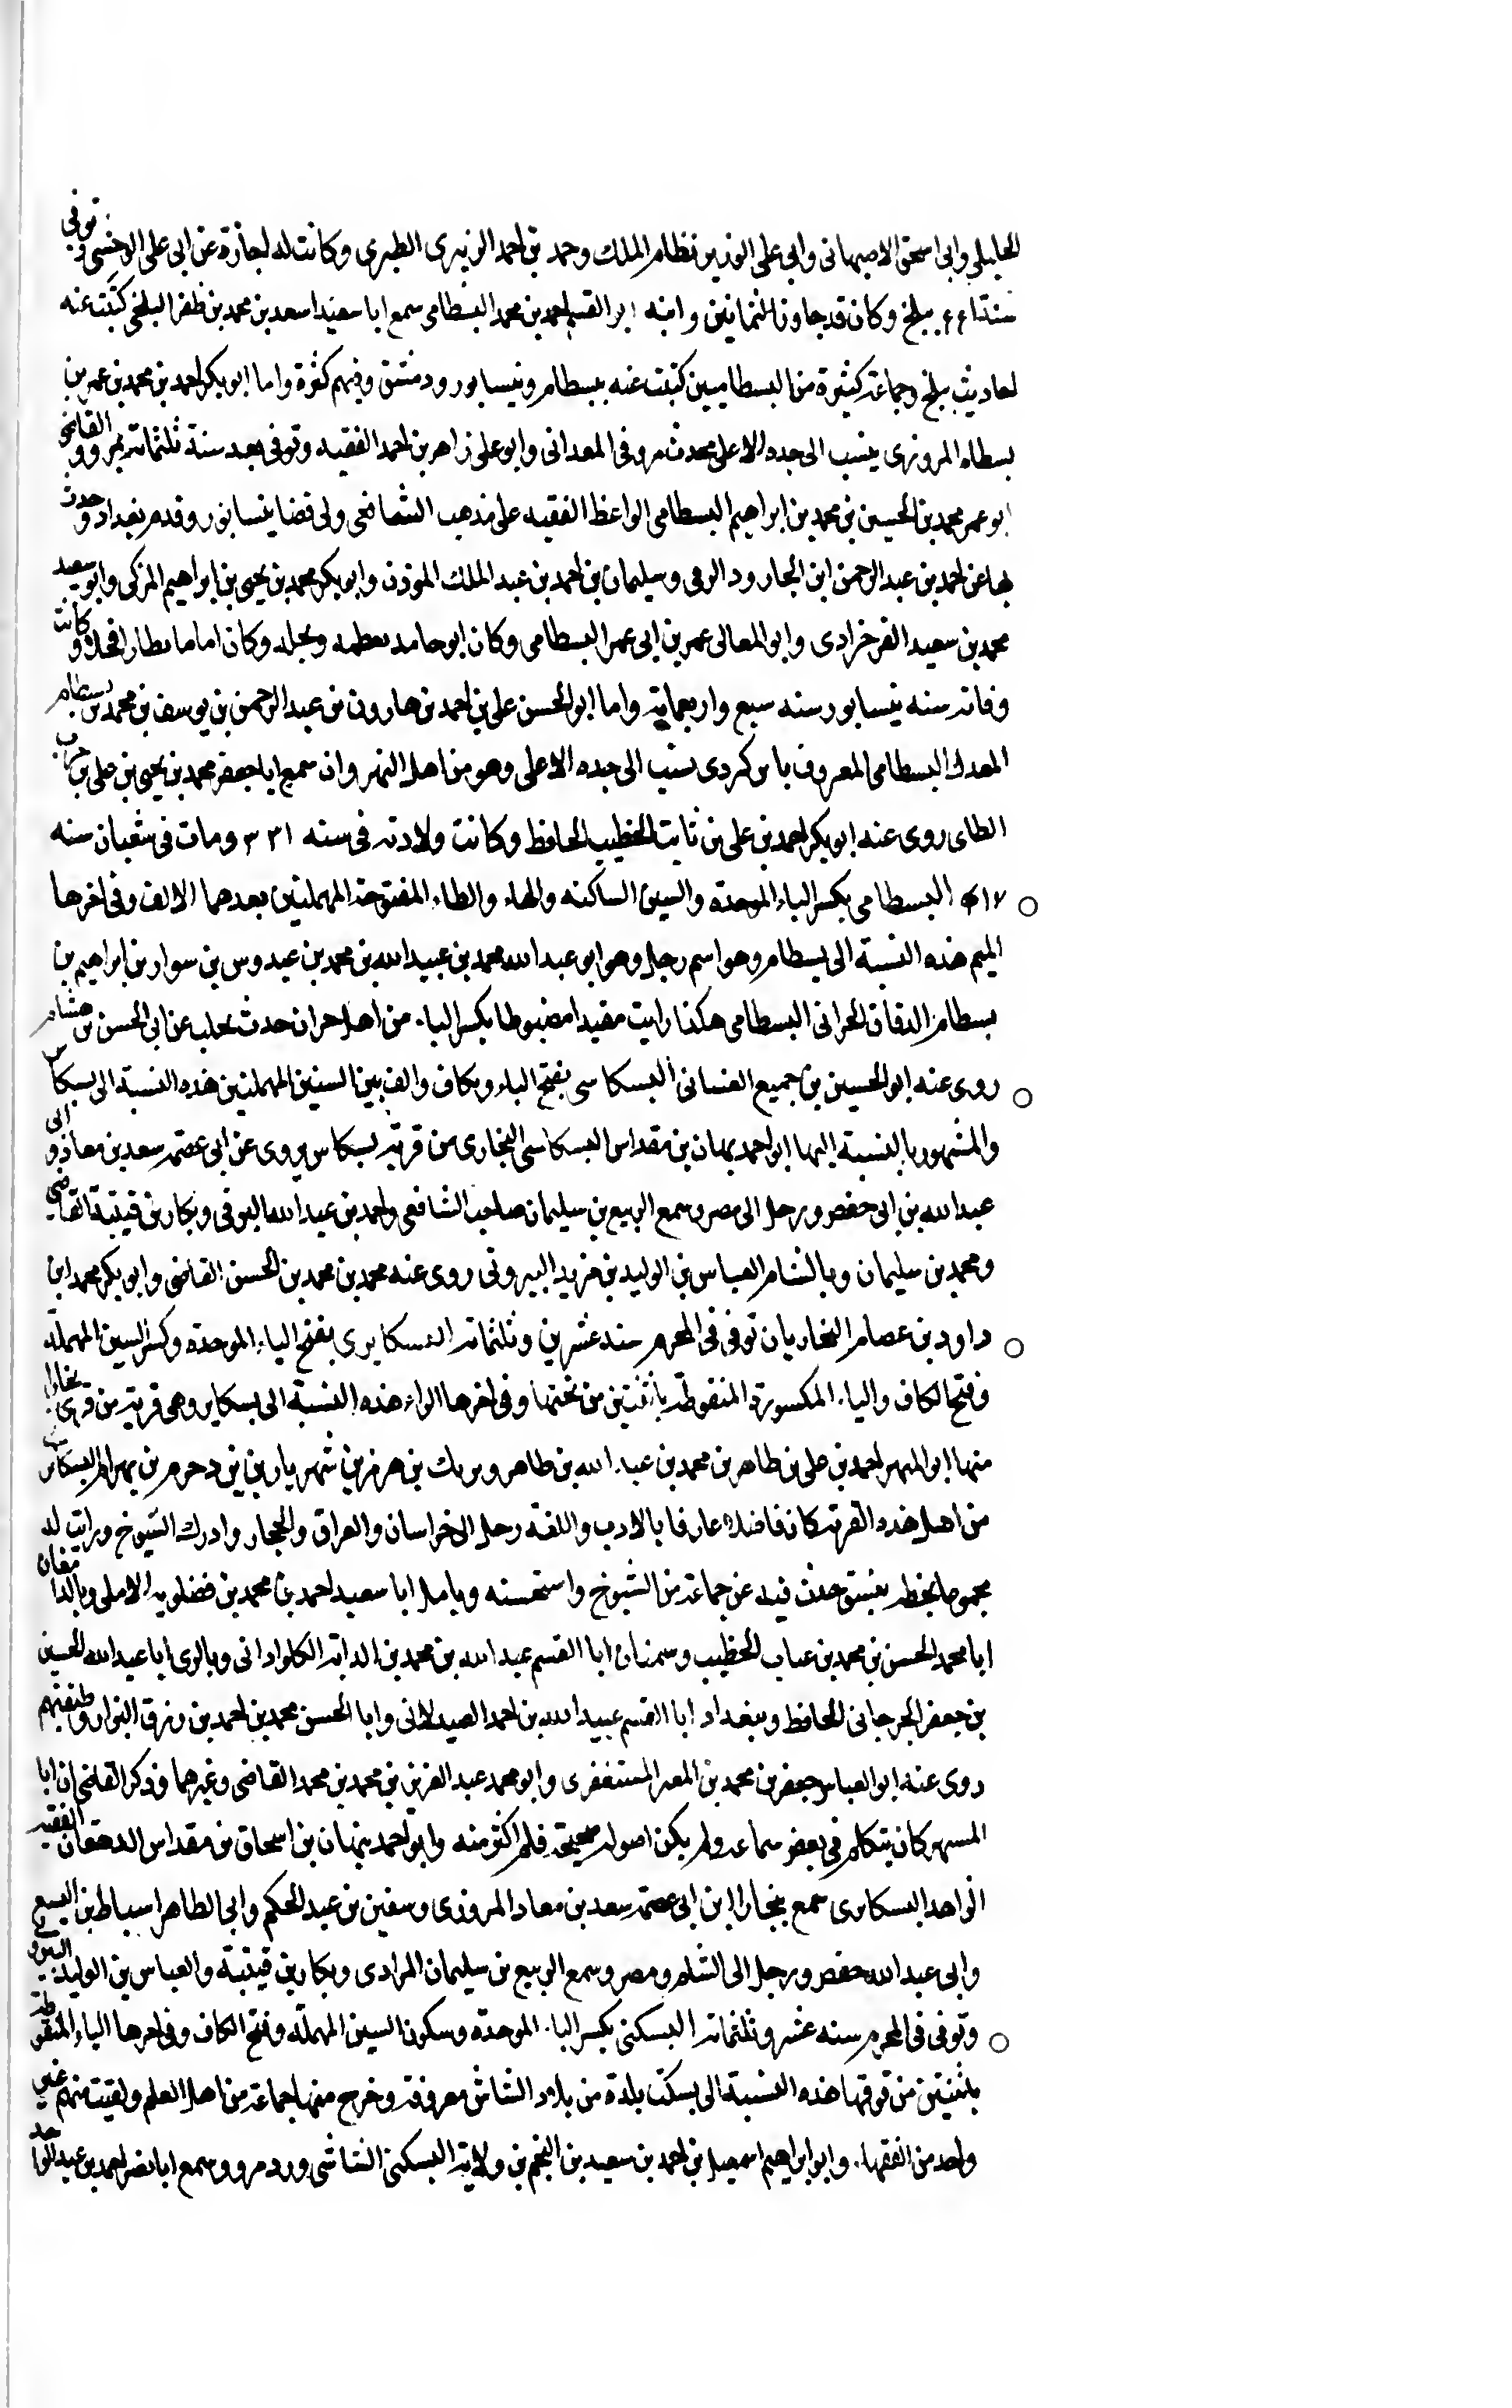 الخليلي وابى اسحق الاصبهانى وابى على الوزير نظام الملك وحمد بن احمد الزبيرى الطبرى وكانت له اجازة عن ابى على الوخشى وتوفى
سنة ببلخ وكان قد جاوز الثمانين وابنه ابو القسم احمد بن محمد البسطامى سمع ابا سعيد اسعد بن محمد بن ظفر البلخى كتبت عنه
احاديث ببلخ وجماعة كثيرة من البسطاميين كتبت عنه ببسطام ونيسابور ودمشق وفيهم كثرة واما ابو بكر احمد بن محمد بن عمر بن
بسطام المروزى ينسب الى جده الاعلى محدث مروفى المعدانى وابو على زاهر بن احمد الفقيه وتوفى بعد سنة ثلثماتة بمرو والقاضى
ابو عمر محمد بن الحسين بن محمد بن ابراهيم البسطامى الواعظ الفقيه على مذهب الشافعى ولى قضا نيسابور وقدم بغداد وحدث
بها عن احمد بن عبد الرحمن ابن الجارود الرقى وسليمان بن احمد بن عبد الملك الموذن وابو بكر محمد بن يحيى بن ابراهيم المزكى وابو سعيد
محمد بن سعيد الفرخزادى وابو المعالى عمر بن ابى عمر البسطامى وكان ابو حامد يعظمه ويجله وكان اماما نظارا فحلا وكانت
وفاته سنه نيسابور سنه سبع واربعماية واما ابو الحسن على بن احمد بن هارون بن عبد الرحمن بن يوسف بن محمد بن بسطام
المعدل البسطامى المعروف بابن كردى نسب الى جده الاعلى وهو من اهل النهروان سمع ابا جعفر محمد بن يحيى بن على بن حرب
الطاى روى عنه ابو بكر احمد بن على بن ثابت الخطيب الحافظ وكانت ولادته فى سنه ٣٣١ ومات فى شعبان سنه
٤١٧ البسطامى بكسر الباء الموحدة والسين الساكنه والهاء والطاء المفتوحة المهملتين بعدهما الالف وفى اخرها
الميم هذه النسبة الى بسطام وهو اسم رجل وهو ابو عبد الله محمد بن عبيد الله بن محمد بن عبدوس بن سوار بن ابراهيم بن
بسطام الدقاق الحرانى البسطامى هكذا رايت مقيدا مضبوطا بكسر الباء من اهل حران حدث بحلب عن ابى الحسن بن هشام
روى عنه ابو الحسين بن جميع الغسانى البسكاسى بفتح الباء وبكاف والف بين السينين المهملتين هذه النسبة الى بسكاس
والمشهور بالنسبة اليها ابو احمد نبهان بن مقداس البسكاسى البخارى من قرية بسكاس يروى عن ابى عصمة سعد بن معاذ وابى
عبد الله بن ابى حفص ورحل الى مصر وسمع الربيع بن سليمان صاحب الشافعى واحمد بن عبد الله البرقى وبكار بن قتيبة القاضى
ومحمد بن سليمان وبالشام العباس بن الوليد بن مزيد البيروتى روى عنه محمد بن محمد بن الحسن القاضى وابو بكر محمد ابن
داود بن عصام البخاريان توفى فى المحرم سنة عشرين وثلثمائة البسكايرى بفتح الباء الموحدة وكسر السين المهملة
وفتح الكاف والياء المكسورة المنقوطة باثنتين من تحتها وفى اخرها الراء هذه النسبة الى بسكاير وهى قرية من قرى بخارا
منها ابو المشهر احمد بن على بن طاهر بن محمد بن عبد الله بن طاهر بن هرمز بن شهريار بن بهرام البسكايرى
من اهل هذه القرية كان فاضلا عارفا بالادب واللغه رحل الى خراسان والعراق والحجاز وادرك الشيوخ ورايت له
مجموعا بخطه بنسق حدث فيه عن جماعة من الشيوخ واستحسنه وبامل ابا سعيد احمد بن محمد بن فضلويه الاملى وبالدامغان
ابا محمد الحسن بن محمد بن عباب الخطيب وسمنان ابا القسم عبد الله بن محمد بن الداية الكلوادانى وبالرى ابا عبد الله الحسين
بن جعفر الجرجانى الحافظ وببغداد ابا القسم عبيد الله بن احمد الصيدلانى وابا الحسن محمد بن احمد بن رزق البزار وطبقتهم
روى عنه ابو العباس جعفر بن محمد بن المعتز المستغفرى وابو محمد عبد العزيز بن محمد بن محمد القاضى وغيرهما وذكر القاضى ان ابا
المشهر كان يتكلم فى بعض سماعه ولم يكن اصوله صحيحة فلم اكثر منه وابو احمد نبهان بن اسحاق بن مقداس الدهقان الفقيه
الزاهد البسكايرى سمع ببخارا ابن ابى عصمة سعد بن معاذ المروزى وسفين بن عبد الحكم وابى الطاهر اسباط بن اليسع
وابى عبد الله حفص ورحل الى الشام ومصر وسمع الربيع بن سليمان المرادى وبكار بن قتيبة والعباس بن الوليد
وتوفى فى المحرم سنه عشر وثلثمائة البسكتى بكسر الباء الموحدة وسكون السين المهملة وفتح الكاف وفى اخرها التاء المنقوطة
باثنتين من فوقها هذه النسبة الى بسكت بلدة من بلاد الشاش معروفة وخرج منها جماعة من اهل العلم ولقيت منهم غير
واحد من الفقهاء وابو ابراهيم اسمعيل بن احمد بن سعيد بن النجم بن ولاية البسكتى الشاشى ورد مرو وسمع ابا نصر احمد بن عبد الواحد